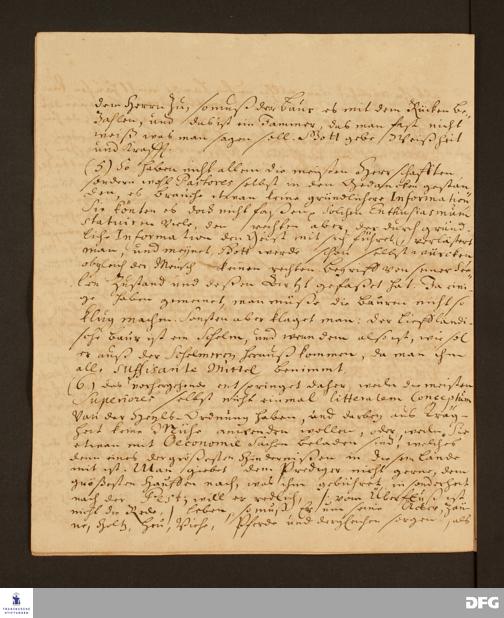 dem Herrn zu, so muß der Baur es mit dem Rücken be-
zahlen, und das ist ein Jammer, das man fast nicht
weiß was man sagen soll. Gott gebe Weißheit
und Krafft.
(5) So haben nicht allein die meisten Herrschafften,
sondern wohl Pastores selbst in den Gedancken gestan-
den, es brauche etwan keine gründlichere Information
Sie könten es doch nicht
statuiren viele, den rechten aber, der durch gründ-
liche Information den Geist mit sich führet, verlästert
man, und meynet, Gott werde schon selbst würcken
obgleich der Mensch keinen rechten begriff von seiner See-
len Zustand und deßen Licht gefaßet hat. Ja eini-
ge haben gemeinet, man müste die Bauren nicht so
klug machen. Sonsten aber klaget man: der Liefländi-
sche Baur ist ein Schelm, und wenn dem also ist, wie sol
er auß der Schelmerey herauß kommen, da man ihm
alle suffisante Mittel benimmt.
(6.) das vorhergehende entspringet daher, weilen die meisten
Superiores selbst nicht einmal litteralem Conceptum
von der Heyls-Ordnung haben, und darbey aus Träg-
heit keine Mühe anwenden wollen, oder, weilen Sie
etwan mit Oeconomie Sachen beladen sind, welches
denn eines der grösesten Hindernißen in diesem Lande
mit ist. Man giebet dem Prediger nicht gerne, dem
grösesten Hauffen nach, was ihm gebühret, insonderheit
nach der Pest, will er redlich, |: vom Uberfluß ist
nicht die Rede, :| leben, so muß Er um seine Acker, Zäu-
ne, Holtz, Heu, Viehe, Pferde und dergleichen sorgen, als
FRANCKESCHE
STIFTUNGEN
DFG